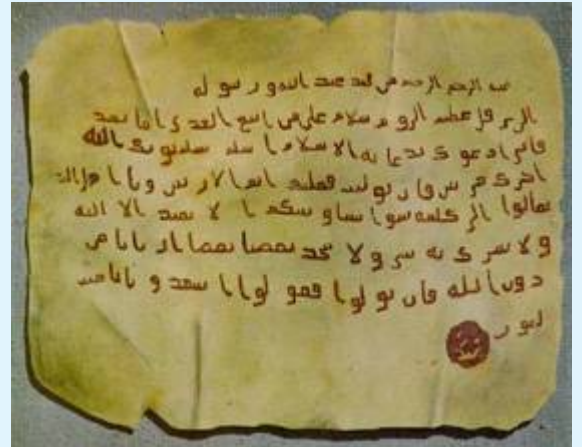 الرحمن الرحيم من محمد عبد الله و رسوله
الى هرقل عظيم الروم سلام على من اتبع الهدى اما بعد
فانى ادعوك بدعاية الاسلام اسلم تسلم يوتك الله
اجرك مرتين فان توليت فعليك اثم ويا اهل
تعالوا الى كلمة سوا بيننا وبينكم ا لا نعبد الا الله
ولا نشرك به ولا يتخذ بعضنا بعضا اربابا من
دون الله فان تولوا فقولوا ا شهدو بانا